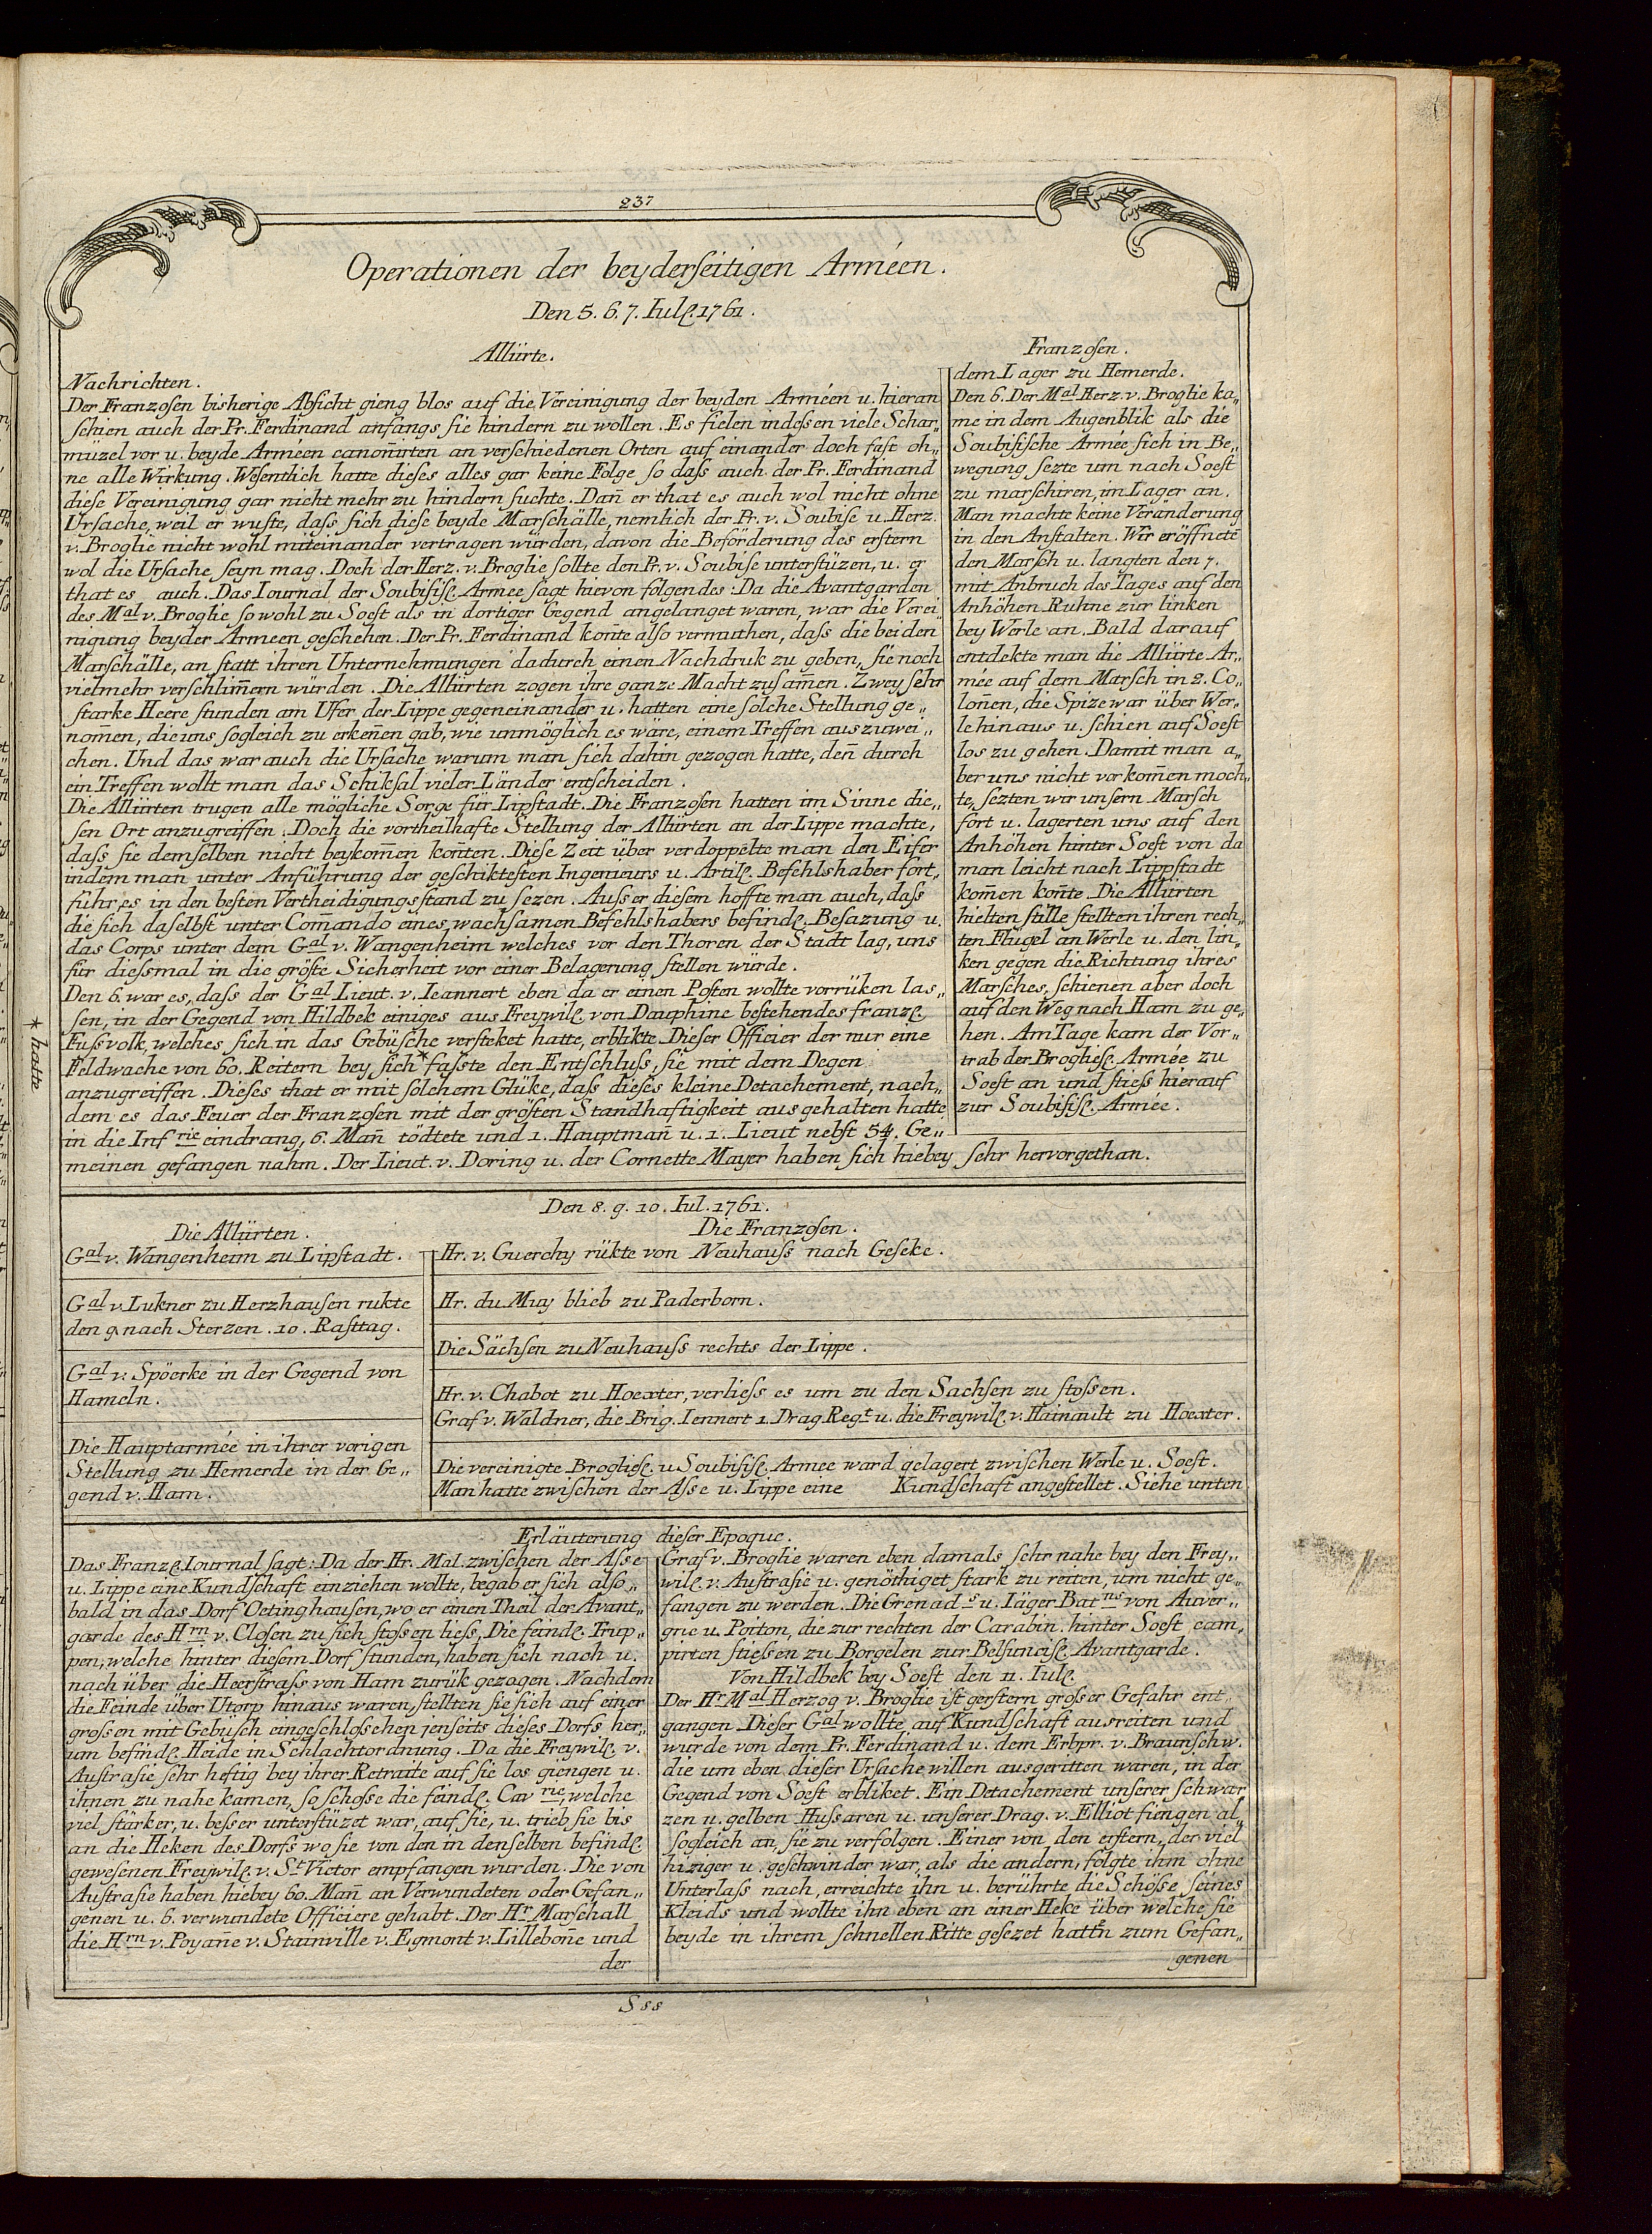 237
Operationen der beyderſeitigen Arméen.
Den 5. 6. 7. Iulſ. 1761.
Alliirte.
Nachrichten.
Der Franzoſen bisherige Abſicht gieng blos auf die Vereinigung der beyden Arméen u. hieran
ſchien auch der Pr. Ferdinand anfangs ſie hindern zu wollen. Es fielen indeſsen viele Schar„
muzel vor u. beyde Arméen canoñirten an verſchiedenen Orten auf einander doch faſt oh„
ne alle Wirkung. Weſentlich hatte dieſes alles gar keine Folge ſo daſs auch der Pr. Ferdinand
dieſe Vereinigung gar nicht mehr zu hindern ſuchte. Dañ er that es auch wol nicht ohne
Urſache, weil er wuſte, daſs ſich dieſe beyde Marſchälle, nemlich der Pr. v. Soubiſe u. Herz.
v. Broglie nicht wohl miteinander vertragen würden, davon die Beförderung des erſtern
wol die Urſache ſeyn mag. Doch der Herz. v. Broglie ſollte den Pr. v. Soubiſe unterſtüzen, u. er
that es auch. Das Iournal der Soubiſiſſ. Armee ſagt hievon folgendes: Da die Avantgarden
des Mal v. Broglie ſo wohl zu Soeſt als in dortiger Gegend angelanget waren, war die Verei„
nigung beyder Armeen geſchehen. Der Pr. Ferdinand koñte alſo vermuthen, daſs die beiden
Marſchälle, an ſtatt ihren Unternehmungen dadurch einen Nachdruk zu geben, ſie noch
vielmehr verſchlim̄ern würden. Die Alliirten zogen ihre ganze Macht zuſam̄en. Zwey ſehr
ſtarke Heere ſtunden am Ufer der Lippe gegeneinander u. hatten eine ſolche Stellung ge„
nom̄en, die uns ſogleich zu erkeñen gab, wie unmöglich es wäre, einem Treffen auszuwei„
chen. Und das war auch die Urſache warum man ſich dahin gezogen hatte, deñ durch
ein Treffen wollt man das Schikſal vieler Länder entſcheiden.
Die Alliirten trugen alle mögliche Sorge für Lipſtadt. Die Franzoſen hatten im Sinne die„
ſen Ort anzugreiffen. Doch die vortheilhafte Stellung der Alliirten an der Lippe machte,
daſs ſie demſelben nicht beykom̄en koñten. Dieſe Zeit über verdoppelte man den Eifer
indem man unter Anführung der geſchikteſten Ingenieurs u. Artilſ. Befehlshaber fort„
fuhr, es in den beſten Vertheidigungsſtand zu ſezen. Auſser dieſem hoffte man auch, daſs
die ſich daſelbſt unter Com̄ando eines wachſamen Befehlshabers befindſ. Beſazung u.
das Corps unter dem Gal v. Wangenheim welches vor den Thoren der Stadt lag, uns
für dieſsmal in die gröſte Sicherheit vor einer Belagerung ſtellen würde.
Den 6. war es, daſs der Gal Lieut. v. Ieannert eben da er einen Poſten wollte vorrüken laſ„
ſen, in der Gegend von Hildbek einiges aus Freywilſ. von Dauphine beſtehendes franzſ.
Fuſsvolk, welches ſich in das Gebüſche verſteket hatte, erblikte. Dieſer Officier der nur eine
Feldwache von 60. Reitern bey ſich * faſste den Entſchluſs, ſie mit dem Degen
anzugreiffen. Dieſes that er mit ſolchem Glüke, daſs dieſes kleine Detachement, nach„
dem es das Feuer der Franzoſen mit der gröſten Standhaftigkeit ausgehalten hatte
in die Inf rie eindrang, 6. Mañ tödtete und 1. Hauptmañ u. 1. Lieut nebſt 54. Ge„
meinen gefangen nahm. Der Lieut. v. Doring u. der Cornette Mayer haben ſich hiebey ſehr hervorgethan.
* hatte
Franzoſen.
dem Lager zu Hemerde.
Den 6. Der Mal Herz. v. Broglie ka„
me in dem Augenblik als die
Soubiſiſche Armee ſich in Be„
wegung ſezte um nach Soeſt
zu marſchiren, im Lager an.
Man machte keine Veränderung
in den Anſtalten. Wir eröffneté
den Marſch u. langten den 7.
mit Anbruch des Tages auf den
Anhöhen Ruhne zur linken
bey Werle an. Bald darauf
entdekte man die Alliirte Ar„
mée auf dem Marſch in 2. Co„
loñen, die Spize war über Wer„
le hinaus u. ſchien auf Soeſt
los zu gehen. Damit man a„
ber uns nicht vorkom̄en moch„
te, ſezten wir unſern Marſch
fort u. lagerten uns auf den
Anhöhen hinter Soeſt von da
man leicht nach Lippſtadt
kom̄en koñte. Die Alliirten
hielten ſtille ſtellten ihren rech„
ten Flügel an Werle u. den lin„
ken gegen die Richtung ihres
Marſches, ſchienen aber doch
auf den Weg nach Ham zu ge„
hen. Am Tage kam der Vor„
trab der Broglieſſ. Armée zu
Soeſt an und ſtieſs hierauf
zur Soubiſiſſ. Armée.
Den 8. 9. 10. Iul. 1761.
Die Alliirten.
Gal v. Wangenheim zu Lipſtadt.
Gal v. Lukner zu Herzhauſen rukte
den 9. nach Sterzen. 10. Raſttag.
Gal v. Spöerke in der Gegend von
Hameln.
Die Hauptarmée in ihrer vorigen
Stellung zu Hemerde in der Ge„
gend v. Ham.
Die Franzoſen.
Hr. v. Guerchy rükte von Neuhauſs nach Geſeke.
Hr. du Muy blieb zu Paderborn.
Die Sächſen zu Neuhauſs rechts der Lippe.
Hr. v. Chabot zu Hoexter, verlieſs es um zu den Sachſen zu ſtoſsen.
Graf v. Waldner, die Brig. Iennert 1. Drag. Regt u. die Freywilſ. v. Hainault zu Hoexter.
Die vereinigte Broglieſſ. u Soubiſiſſ. Armee ward gelagert zwiſchen Werle u. Soeſt.
Man hatte zwiſchen der Aſse u. Lippe eine Kundſchaft angeſtellet. Siehe unten
Erläuterung dieſer Epoque.
Das Franzſ. Iournal ſagt: Da der Hr. Mal. zwiſchen der Aſse
u. Lippe eine Kundſchaft einziehen wollte, begab er ſich alſo„
bald in das Dorf Oetinghauſen, wo er einen Theil der Avant„
garde des Hrn v. Cloſen zu ſich ſtoſsen lieſs, Die feindſ. Trup„
pen, welche hinter dieſem Dorf ſtunden, haben ſich nach u.
nach über die Heerſtraſs von Ham zurük gezogen. Nachdem
die Feinde über Utorp hinaus waren, ſtellten ſie ſich auf einer
groſsen mit Gebüſch eingeſchloſsehen jenſeits dieſes Dorfs her„
um befindſ. Heide in Schlachtordnung. Da die Freywilſ. v.
Auſtraſie ſehr heftig bey ihrer Retraite auf ſie los giengen u.
ihnen zu nahe kamen, ſo ſchoſse die feindſ. Cav rie, welche
viel ſtärker, u. beſser unterſtüzet war, auf ſie, u. trieb ſie bis
an die Heken des Dorfs wo ſie von den in denſelben befindſ.
geweſenen Freywilſ. v. St Victor empfangen wurden. Die von
Auſtraſie haben hiebey 60. Mañ an Verwundeten oder Gefan„
genen u. 6. verwundete Officiere gehabt. Der Hr Marſchall
die Hrn v. Poyañe v. Stainville v. Egmont v. Lilleboñe und
der
Graf v. Broglie waren eben damals ſehr nahe bey den Frey„
wilſ. v. Auſtraſie u. genöthiget ſtark zu reiten, um nicht ge„
fangen zu werden. Die Grenad s u. Iäger Bat ns von Auver„
gne u. Poiton, die zur rechten der Carabin. hinter Soeſt cam„
pirten ſtieſsen zu Borgelen zur Belſunciſſ. Avantgarde.
Von Hildbek bey Soeſt den 11. Iulſ.
Der Hr Mal Herzog v. Broglie iſt gerſtern groſser Gefahr ent„
gangen Dieſer Gal wollte auf Kundſchaft ausreiten und
wurde von dem Pr. Ferdinand u. dem Erbpr. v. Braunſchw.
die um eben dieſer Urſache willen ausgeritten waren, in der
Gegend von Soeſt erbliket. Ein Detachement unſerer ſchwar„
zen u. gelben Huſsaren u. unſerer Drag. v. Elliot fiengen al„
ſogleich an, ſie zu verfolgen. Einer von den erſtern, der viel
hiziger u. geſchwinder war, als die andern, folgte ihm ohne
Unterlaſs nach, erreichte ihn u. berührte die Schöſse ſeines
Kleids und wollte ihn eben an einer Heke über welche ſie
beyde in ihrem ſchnellen Ritte geſezet hatten zum Gefan„
genen
Sss